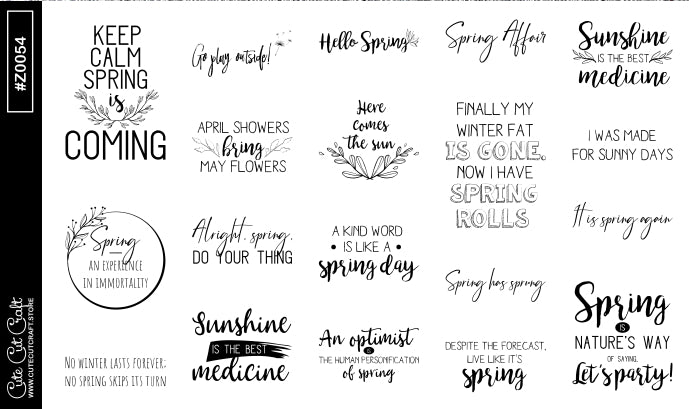 #Z0054
Cute Cut Craft
WWW.CUTECUTCRAFT.STORE
KEEP
CALM
SPRING
is
COMING
Spring
AN EXPERIENCE
IN IMMORTALITY
NO WINTER LASTS FOREVER;
NO SPRING SKIPS ITS TURN
Go play outside!
APRIL SHOWERS
bring
MAY FLOWERS
Alright, spring,
DO YOUR THING
Sunshine
IS THE BEST
medicine
Hello Spring
Here
comes
the sun
A KIND WORD
• IS LIKE A •
spring day
An optimist
IS
THE HUMAN PERSONIFICATION
of spring
Spring Affair
FINALLY MY
WINTER FAT
IS GONE.
NOW I HAVE
SPRING
ROLLS
Spring has sprung
DESPITE THE FORECAST,
LIVE LIKE IT'S
spring
Sunshine
IS THE BEST
medicine
I WAS MADE
FOR SUNNY DAYS
It is spring again
Spring
IS
NATURE'S WAY
OF SAYING,
Let's party!